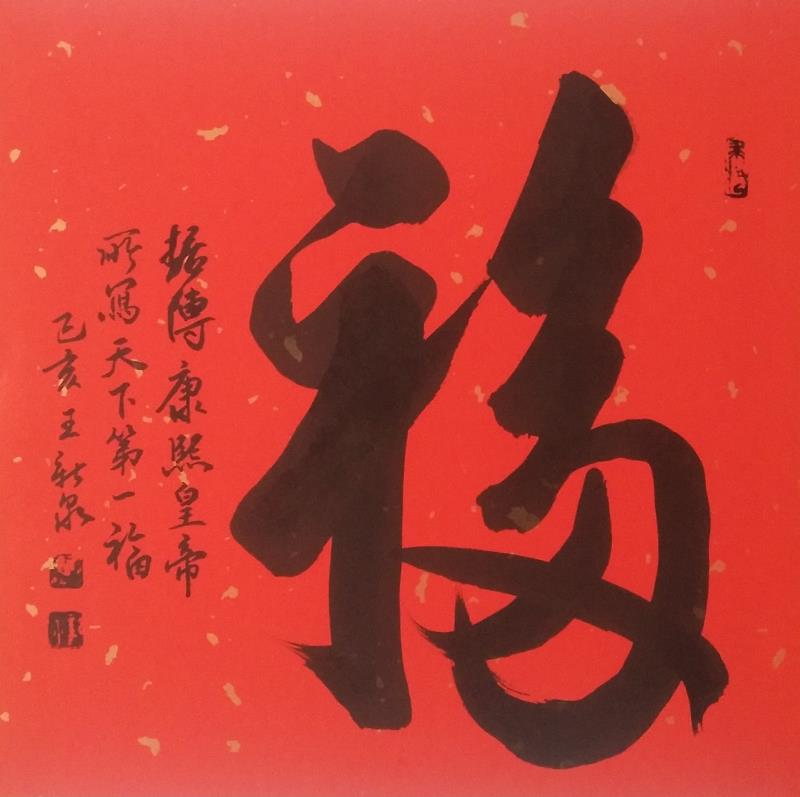 福
据傳康熙皇帝
所寫天下第一福
己亥王新泉